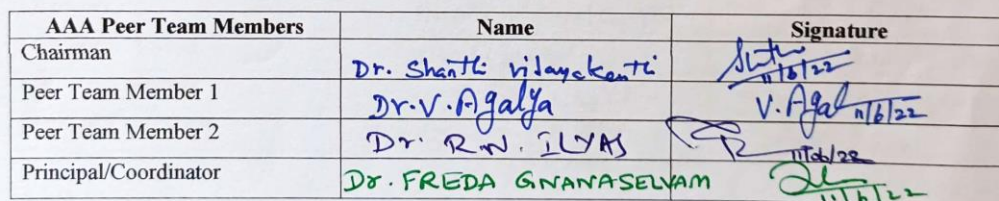 AAA Peer Team Members Name Signature
Chairman Dr. Shanthi vijayakanthi 11/6/22
Peer Team Member 1 Dr. V. Agalya V. Agal 11/6/22
Peer Team Member 2 Dr. R.N. ILYAS 11/06/22
Principal/Coordinator Dr. FREDA GNANASELVAM 11/6/22